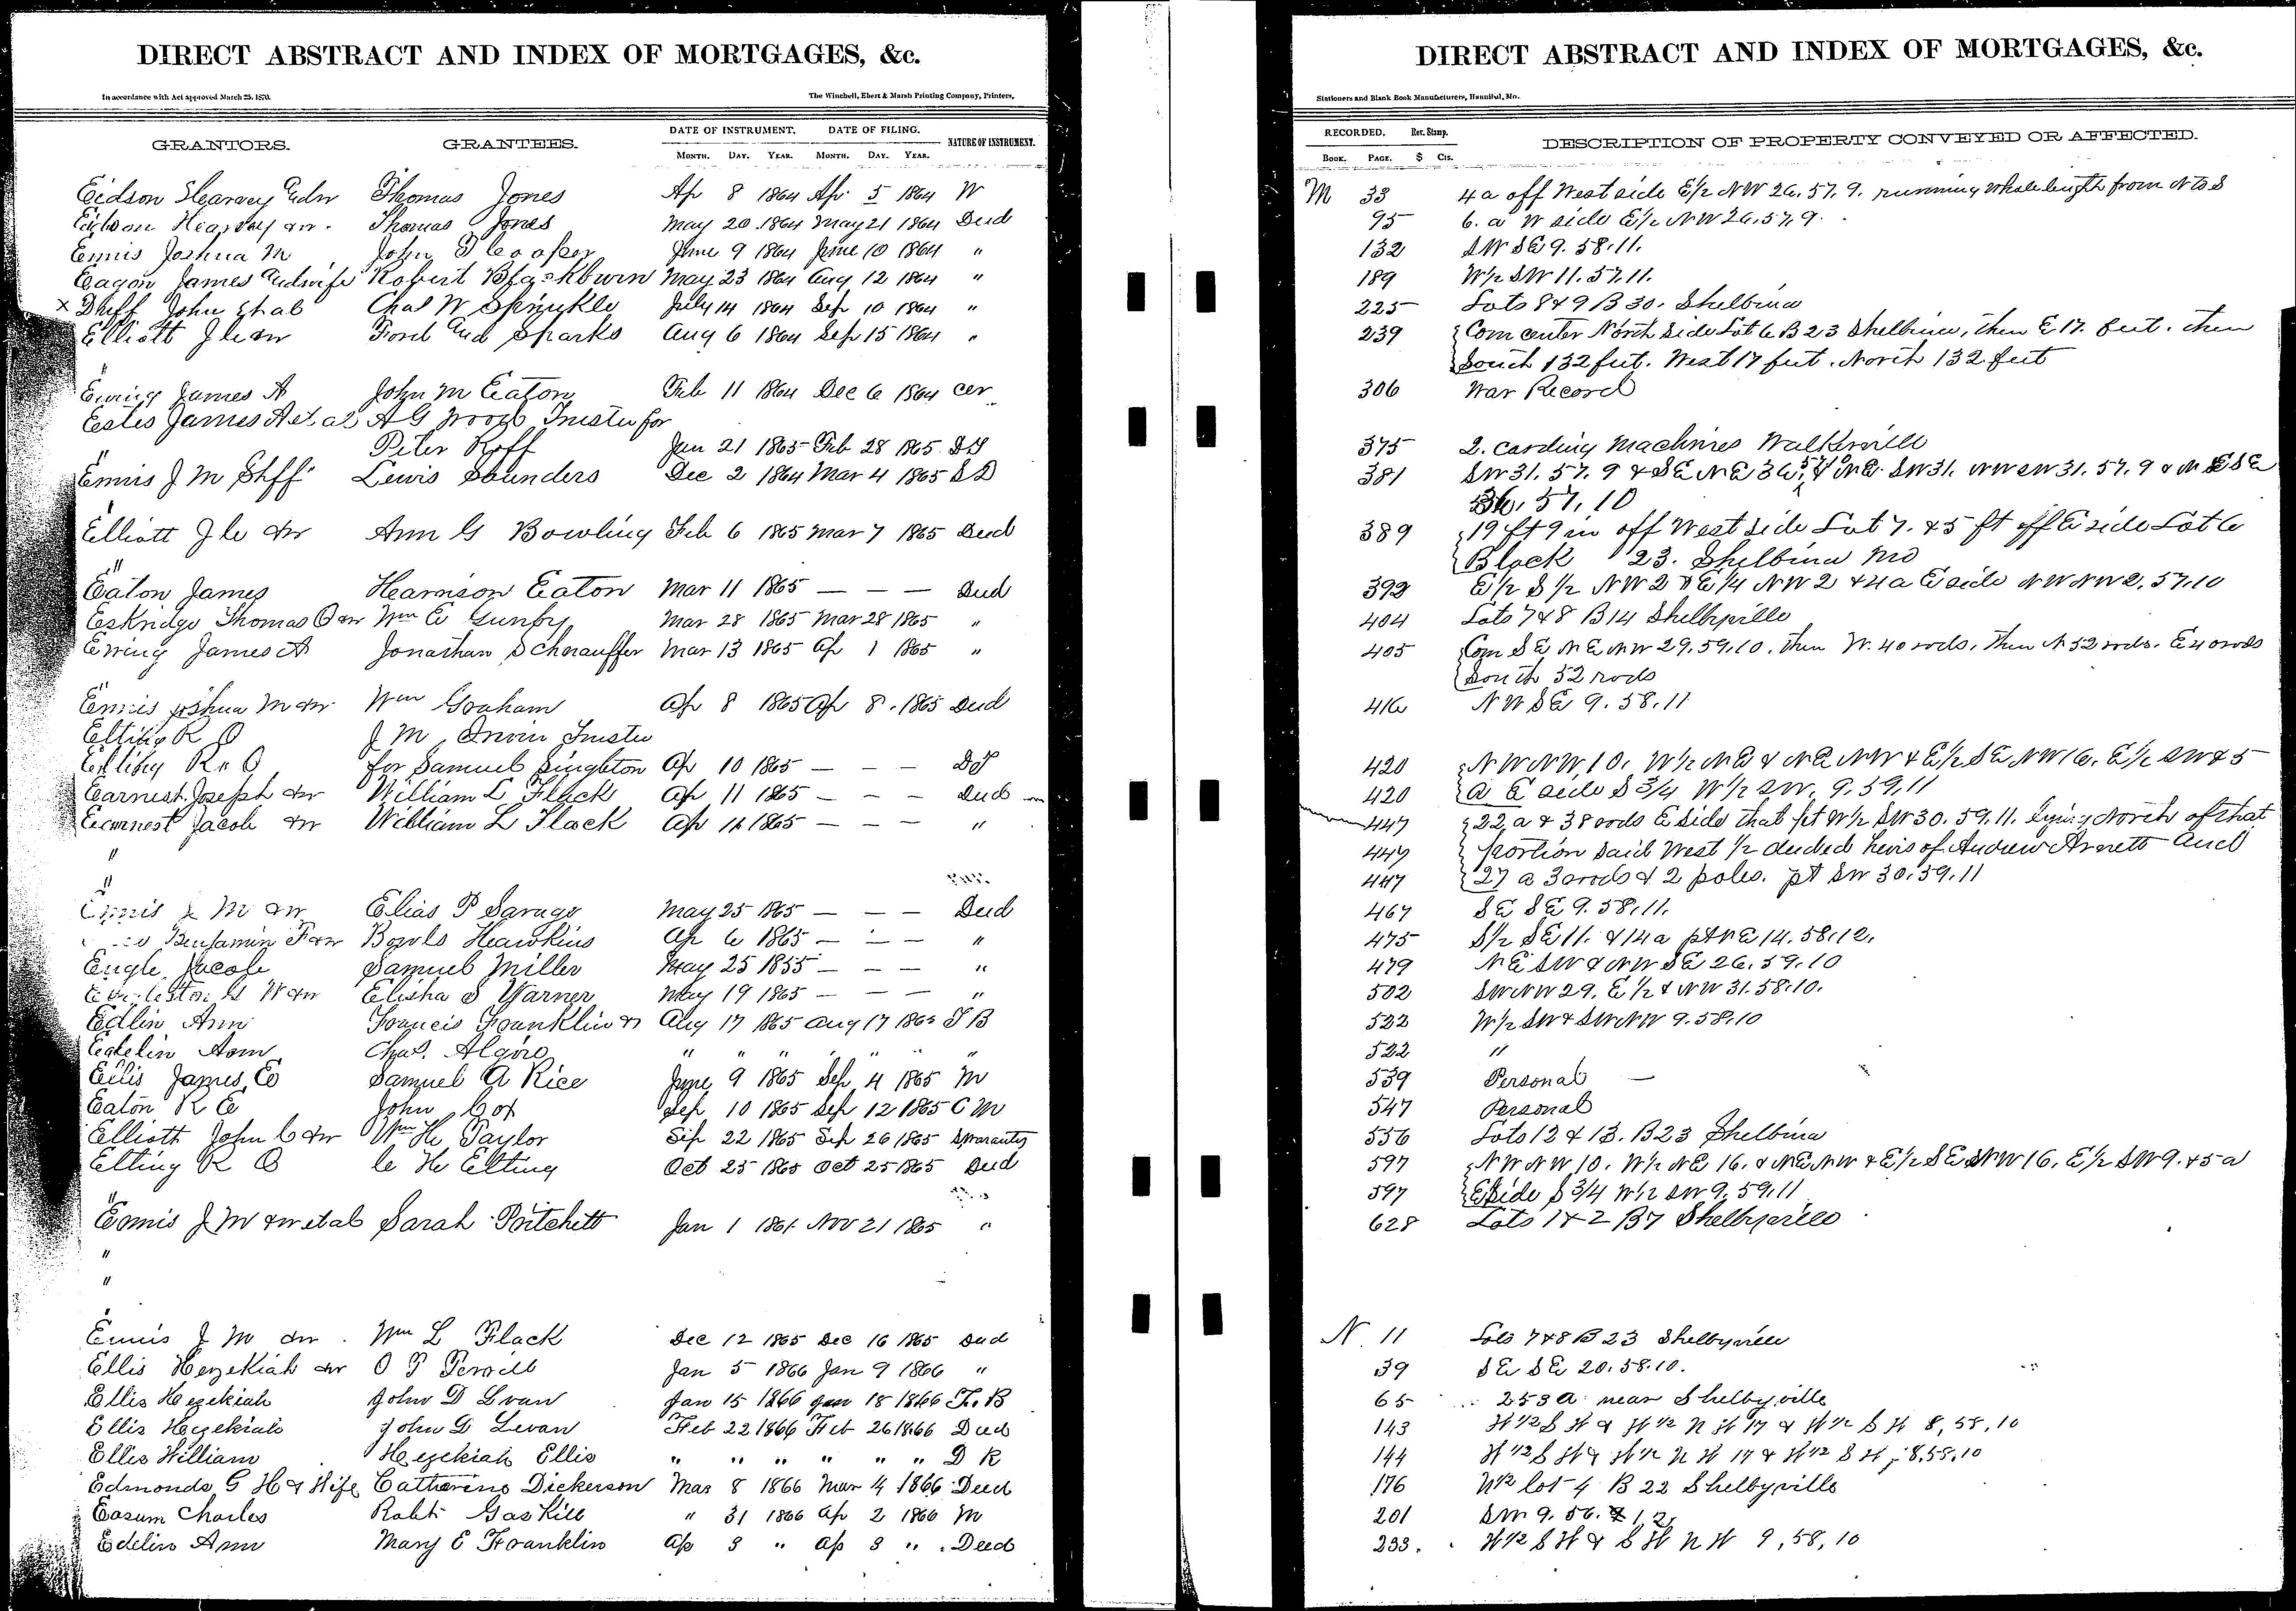 DIRECT ABSTRACT AND INDEX OF MORTGAGES, &c.
In accordance with Act approved March 25, 1870.
The Winchell, Ebert & Marsh Printing Company, Printers,
GRANTORS. GRANTEES. DATE OF INSTRUMENT. DATE OF FILING. NATURE OF INSTRUMENT.
MONTH. DAY. YEAR. MONTH. DAY. YEAR.
Eidson Hearvey Thomas Jones Ap 8 1864 Ap 5 1864 W
Eidson Hearvey Thomas Jones May 20 1864 May 21 1864 Deed
Ennis Joshua M John Cooper June 9 1864 June 10 1864 "
Eagon James and wife Robert Blackburn May 23 1864 Aug 12 1864 "
x Duff John et al Chas W Sprinkle July 14 1864 Sep 10 1864 "
Elliott J C & w Ford and Sparks Aug 6 1864 Sep 15 1864 "
Ewing James A John M Eaton Feb 11 1864 Dec 6 1864 Cer
Estes James A et al A G Wood Trustee for
" Peter Roff Jan 21 1865 Feb 28 1865 DT
Ennis J M Shff Lewis Saunders Dec 2 1864 Mar 4 1865 S D
Elliott J C & w Ann G Bowling Feb 6 1865 Mar 7 1865 Deed
"
Eaton James Hearrison Eaton Mar 11 1865 — — — Deed
Eskridge Thomas O & w Wm E Gunby Mar 28 1865 Mar 28 1865 "
Ewing James A Jonathan Schnauffer Mar 13 1865 Ap 1 1865 "
"
Ennis Joshua M & w Wm Graham Ap 8 1865 Ap 8 1865 Deed
Elting R O J M Irwin Trustee
Elting R O for Samuel Singleton Ap 10 1865 — — — DT
Earnest Joseph & w William L Flack Ap 11 1865 — — — Deed
Earnest Jacob & w William L Flack Ap 11 1865 — — — "
"
"
Ennis J M & w Elias P Savage May 25 1865 — — — Deed
Benjamin F & w Bowls Hawkins Ap 6 1865 — — — "
Engle Jacob Samuel Miller May 25 1855 — — — "
W & w Elisha S Warner May 19 1865 — — — "
Edlin Ann Francis Franklin Aug 17 1865 Aug 17 1865 T B
Edelin Ann Chas. " " " " " "
Ellis James E Samuel A Rice June 9 1865 Sep 4 1865 M
Eaton R E John Cox Sep 10 1865 Sep 12 1865 C M
Elliott John C & w Wm H Taylor Sep 22 1865 Sep 26 1865 Warranty
Elting R O C H Elting Oct 25 1865 Oct 25 1865 Deed
"
Ennis J M & w et al Sarah Pritchett Jan 1 186 Nov 21 1865 "
"
"
"
Ennis J M & w Wm L Flack Dec 12 1865 Dec 16 1865 Deed
Ellis Hezekiah & w O P Jan 5 1866 Jan 9 1866 "
Ellis Hezekiah John D Levan Jan 15 1866 Jan 18 1866 T. B
Ellis Hezekiah John D Levan Feb 22 1866 Feb 26 1866 Deed
Ellis William Hezekiah Ellis " " " " " " D R
Edmonds G H & Wife Catharine Dickerson Mar 8 1866 Mar 4 1866 Deed
Easum Charles Robt Gaskill " 31 1866 Ap 2 1866 M
Edelin Ann Mary E Franklin Ap 3 " Ap 3 " Deed
DIRECT ABSTRACT AND INDEX OF MORTGAGES, &c.
Stationers and Blank Book Manufacturers, Hannibal, Mo.
RECORDED. Rev. Stamp. DESCRIPTION OF PROPERTY CONVEYED OR AFFECTED.
BOOK. PAGE. $ Cts.
M 33 4 a off West side E 1/2 NW 26. 57. 9. running whole length from N to S
95 6. a W side E 1/2 NW 26. 57. 9.
132 SW SE 9. 58. 11.
189 W 1/2 SW 11. 57. 11.
225 Lots 8 & 9 B 30. Shelbina
239 Com center North side Lot 6 B 23 Shelbina, then E 17. feet. then
South 132 feet. West 17 feet. North 132 feet
306 War Record
375 2. Carding Machines Walkerville
381 SW 31. 57. 9 & SE NE 36. & NE SW 31. NW SW 31. 57. 9 & NE SE
36, 57, 10
389 19 ft 9 in off West side Lot 7. & 5 ft off E side Lot 6
Block 23. Shelbina Mo
392 E 1/2 S 1/2 NW 2 & E 1/4 NW 2 & 4 a E side NW NW 2. 57. 10
404 Lots 7 & 8 B 14 Shelbyville
405 Com SE NE NW 29. 59. 10. then W. 40 rods. then N 52 rods. E 40 rods
South 52 rods
416 NW SE 9. 58. 11
420 NW NW 10. W 1/2 NE & NE NW & E 1/2 SE NW 16. E 1/2 SW & 5
420 a E side S 3/4 W 1/2 SW. 9. 59. 11
447 22 a & 38 rods E side that pt W 1/2 SW 30. 59. 11. lying North of that
447 portion said West 1/2 deeded heirs of Andrew Arnett and
447 27 a 3 rods & 2 poles. pt SW 30. 59. 11
467 SE SE 9. 58. 11.
475 S 1/2 SE 11. & 14 a pt NE 14. 58. 12.
479 NE SW & NW SE 26. 59. 10
502 SW NW 29. E 1/2 & NW 31. 58. 10.
522 W 1/2 SW & SW NW 9. 58. 10
522 "
539 Personal —
547 Personal
556 Lots 12 & 13. B 23 Shelbina
597 NW NW 10. W 1/2 NE 16. & NE NW & E 1/2 SE NW 16. E 1/2 SW 9. & 5 a
597 E side S 3/4 W 1/2 SW 9. 59. 11
628 Lots 1 & 2 B 7 Shelbyville
N. 11 Lots 7 & 8 B 23 Shelbyville
39 SE SE 20. 58. 10.
65 253 a near Shelbyville
143 W 1/2 S W & W 1/2 N W 17 & W 1/2 S W 8, 58, 10
144 W 1/2 S W & W 1/2 N W 17 & W 1/2 S W, 8, 58, 10
176 W 1/2 lot 4 B 22 Shelbyville
201 SW 9. 56. 12
233. W 1/2 S W & S W N W 9, 58, 10